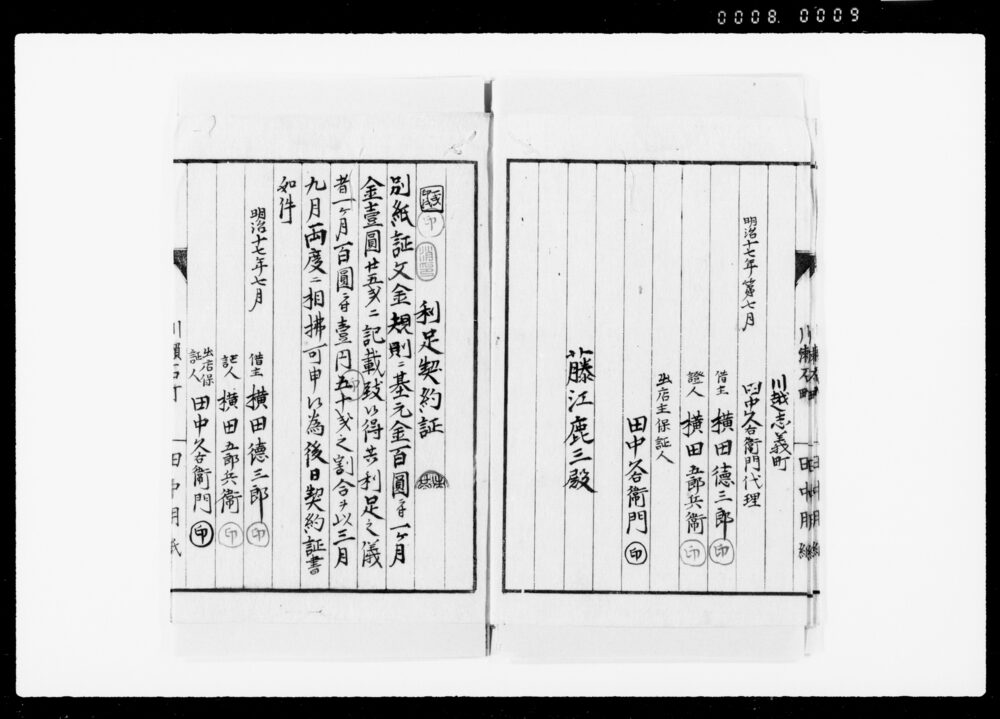 0008 0009
明治十七年第七月
川越志義町
田中久右衛門代理
借主 横田德三郎 印
證人 横田五郎兵衛 印
出店主保証人
田中久右衛門 印
藤江鹿三殿
印
利足契約証
別紙証文金規則ニ基元金百圓ニ付一ヶ月
金壹圓廿五戋ニ記載致候得共利足之儀
者一ヶ月百圓ニ付壹円五十戋之割合ヲ以三月
九月両度ニ相拂可申候為後日契約証書
如件
明治十七年七月
借主 横田德三郎 印
証人 横田五郎兵衛 印
出店保証人 田中久右衛門 印
田中用紙